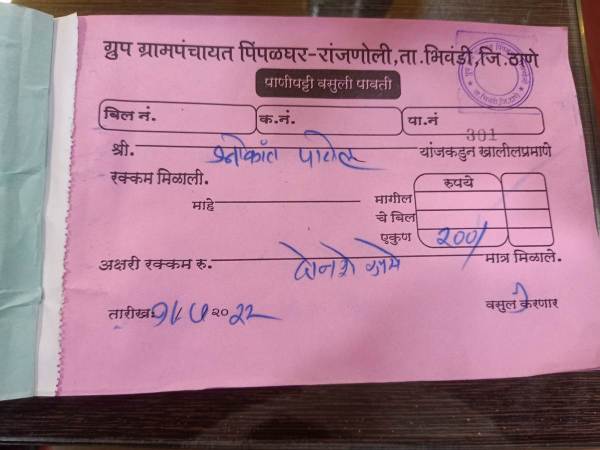 ग्रुप ग्रामपंचायत पिंपळघर-रांजणोली, ता. भिवंडी, जि. ठाणे
पाणीपट्टी वसुली पावती
बिल नं. क.नं. पा.नं
301
श्री. पाटील यांजकडुन खालीलप्रमाणे
रक्कम मिळाली. रुपये
माहे मागील
चे बिल
एकुण 200/
अक्षरी रक्कम रु. दोनशे रुपये मात्र मिळाले.
तारीख २०२२ वसुल करणार